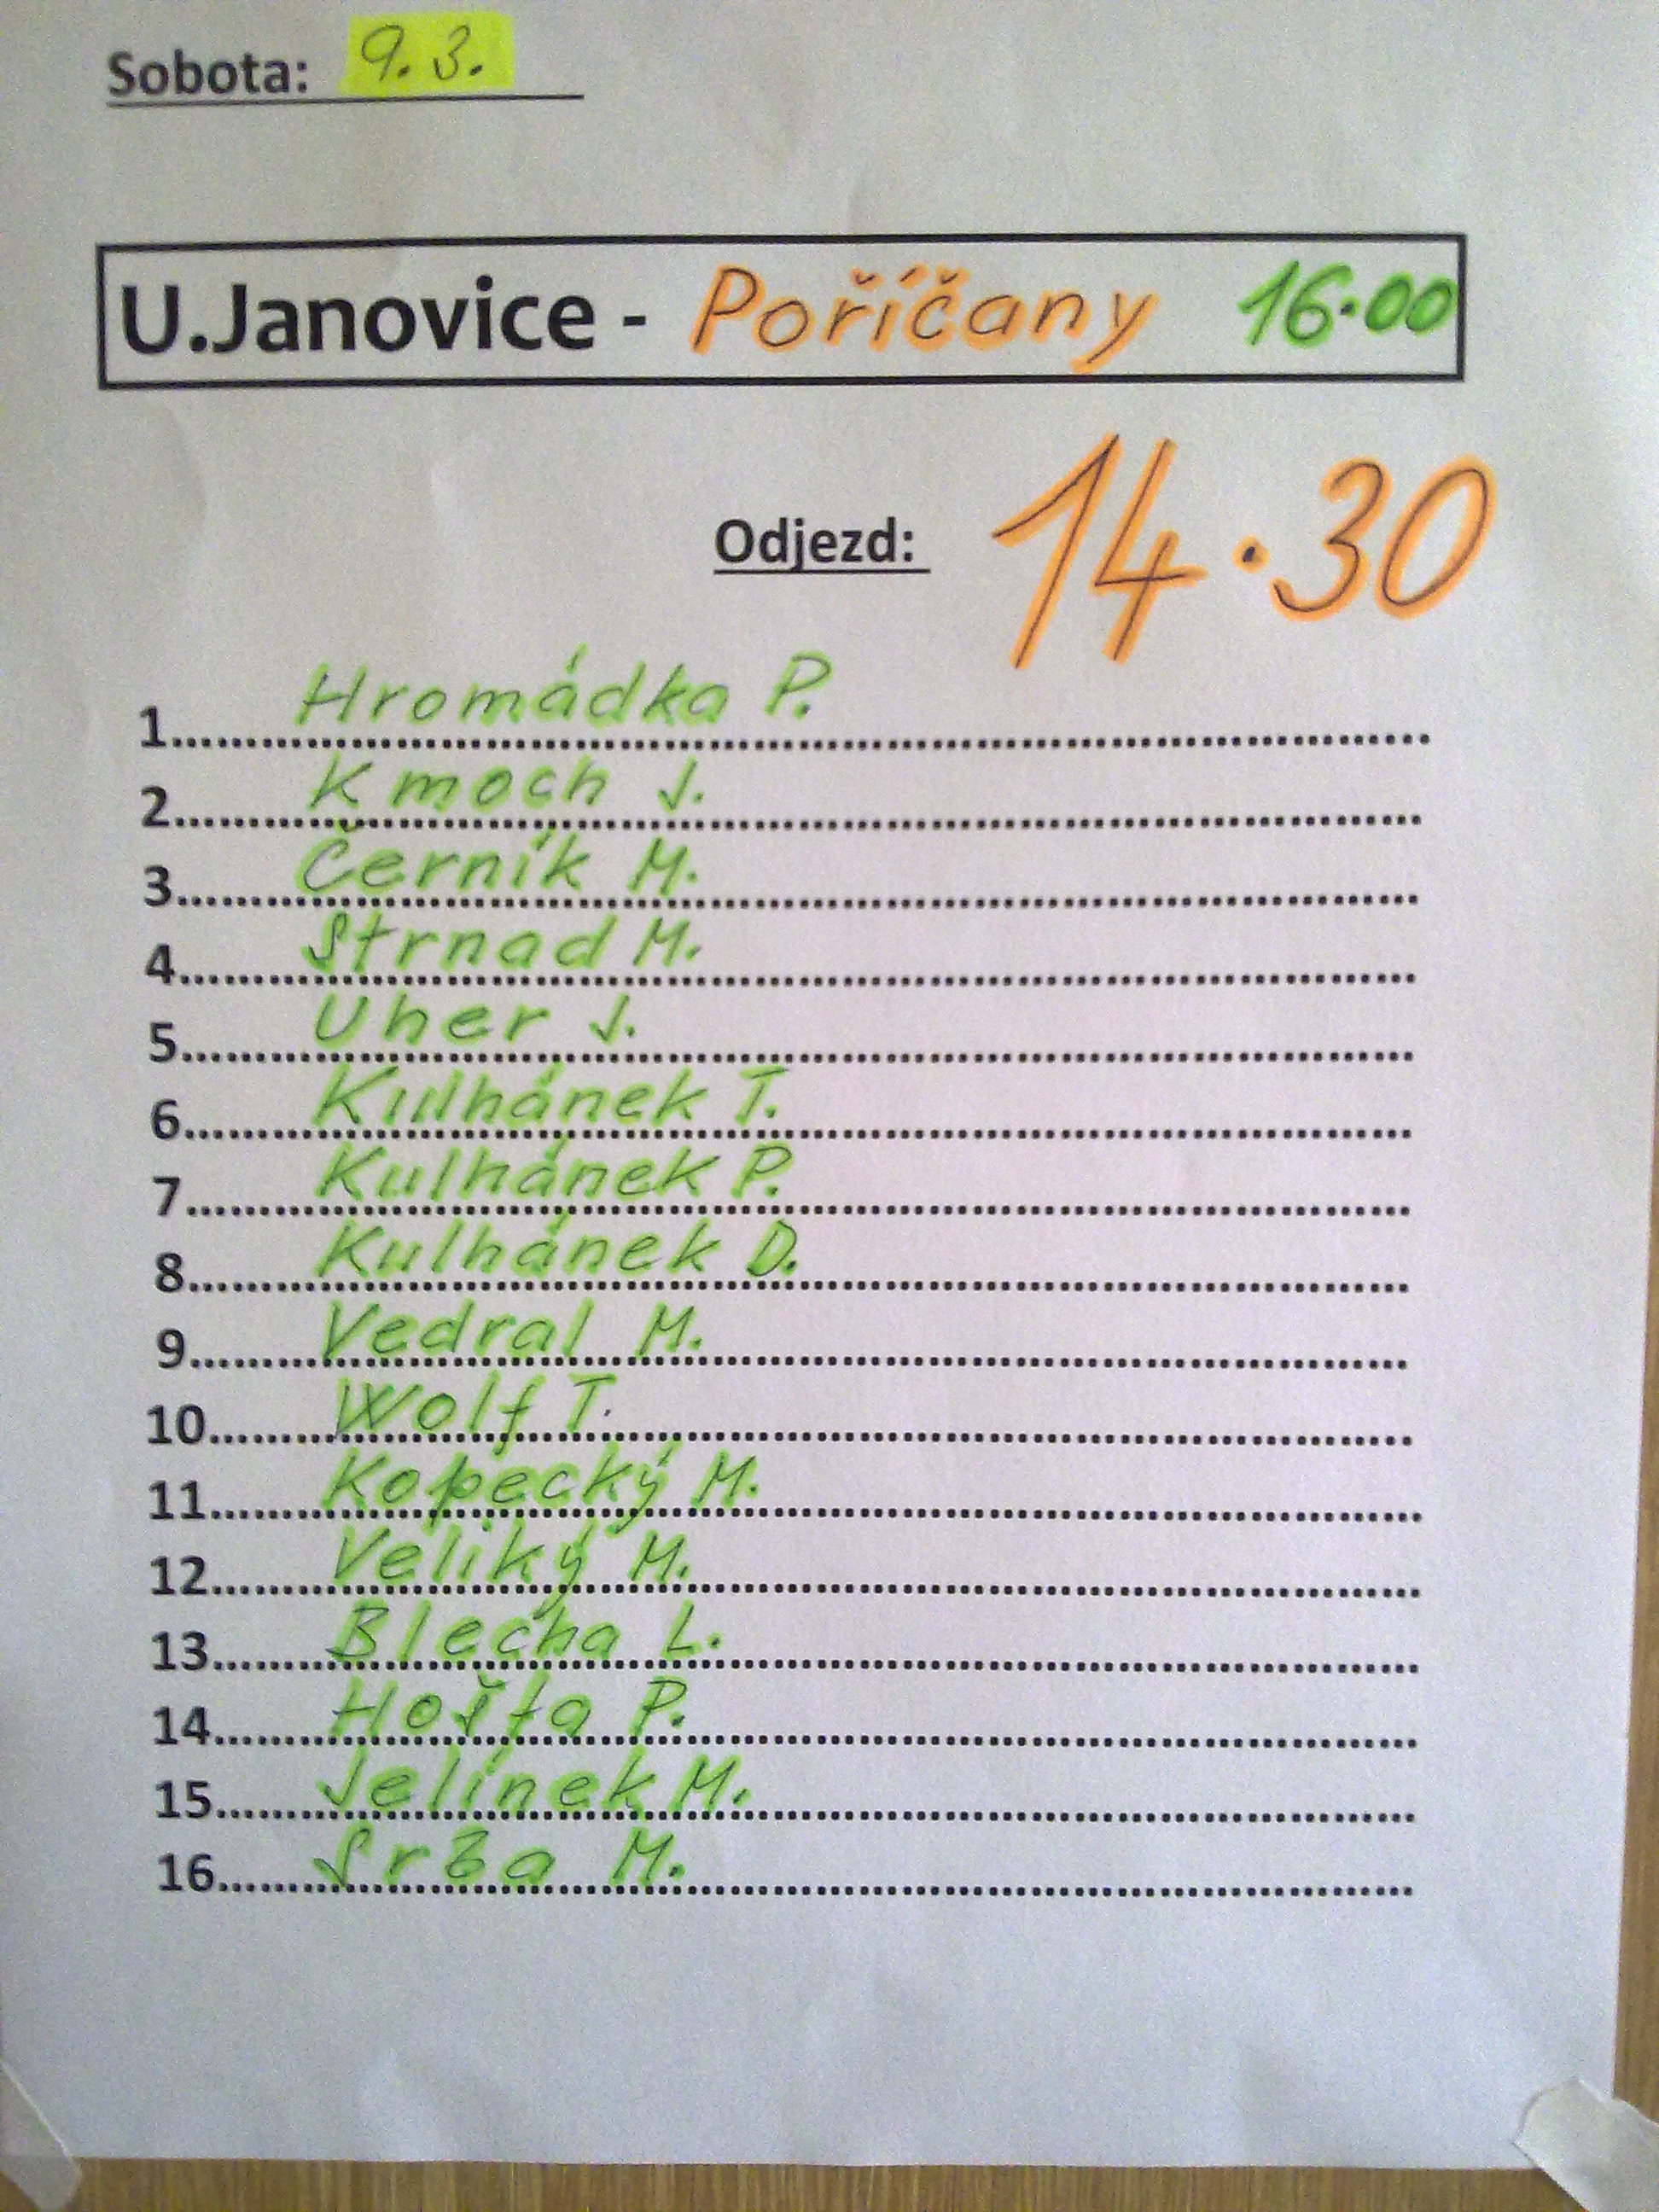 Sobota: 9.3.
U.Janovice - Poříčany 16.00
Odjezd: 14.30
1.....Hromádka P.
2.....Kmoch J.
3.....Černík M.
4.....Strnad M.
5.....Uher J.
6.....Kulhánek T.
7.....Kulhánek P.
8.....Kulhánek D.
9.....Vedral M.
10.....Wolf T.
11.....Kopecký M.
12.....Veliký M.
13.....Blecha L.
14.....Hošta P.
15.....Jelínek M.
16.....Srba M.